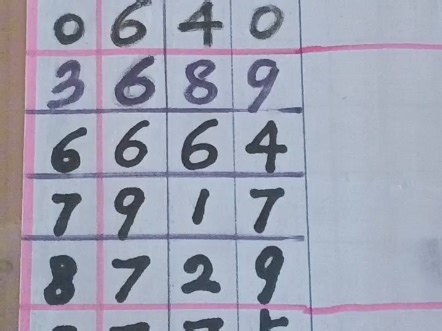 0 6 4 0
3 6 8 9
6 6 6 4
7 9 1 7
8 7 2 9